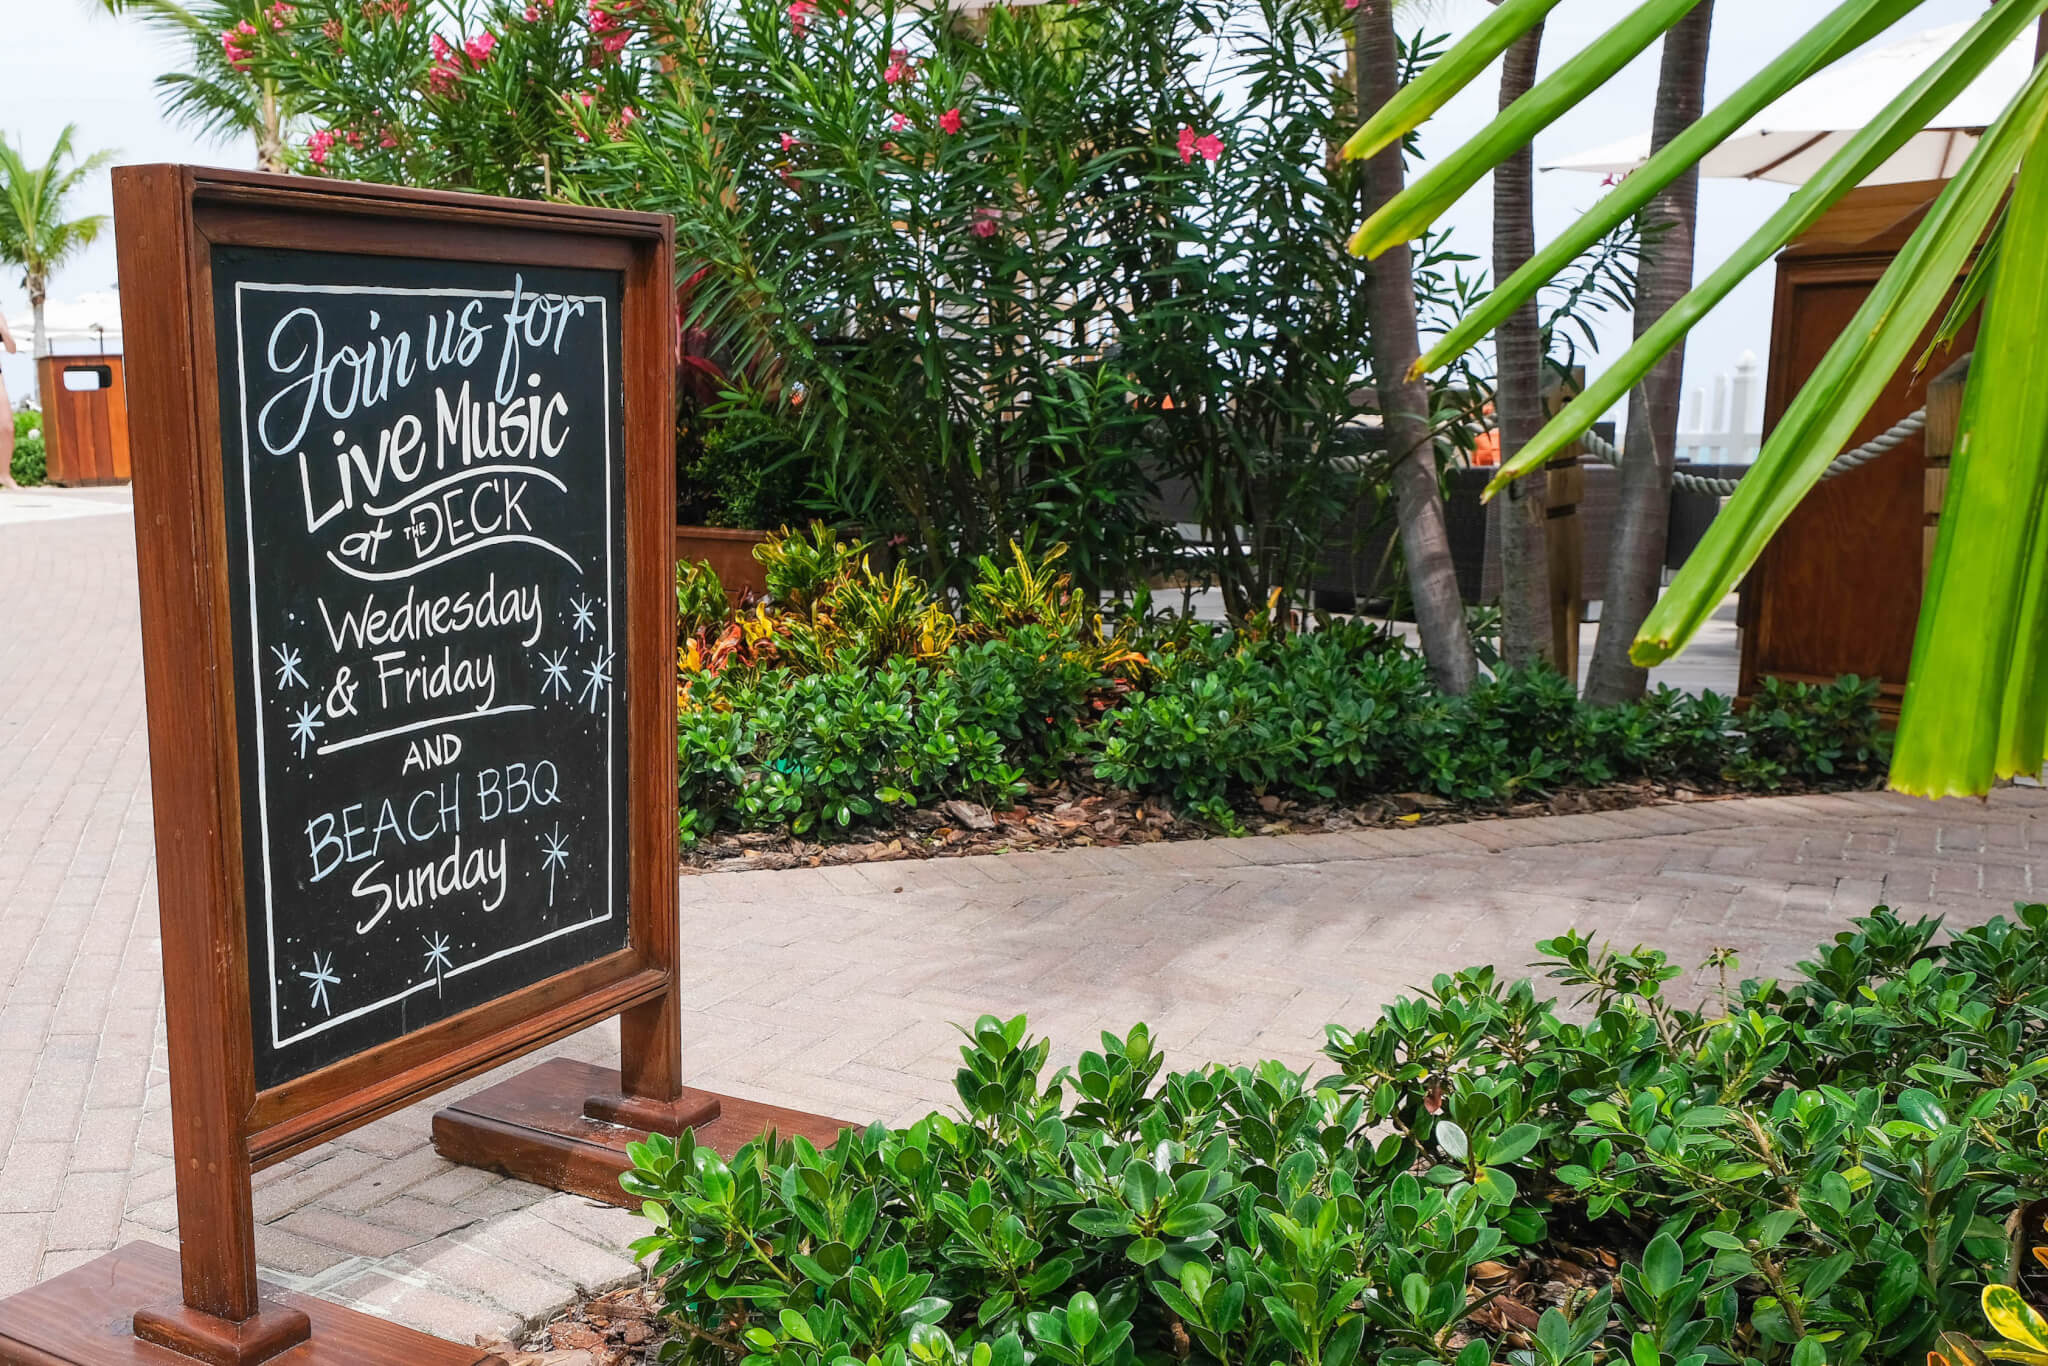 Join us for
Live Music
at THE DECK
Wednesday
& Friday
AND
BEACH BBQ
Sunday